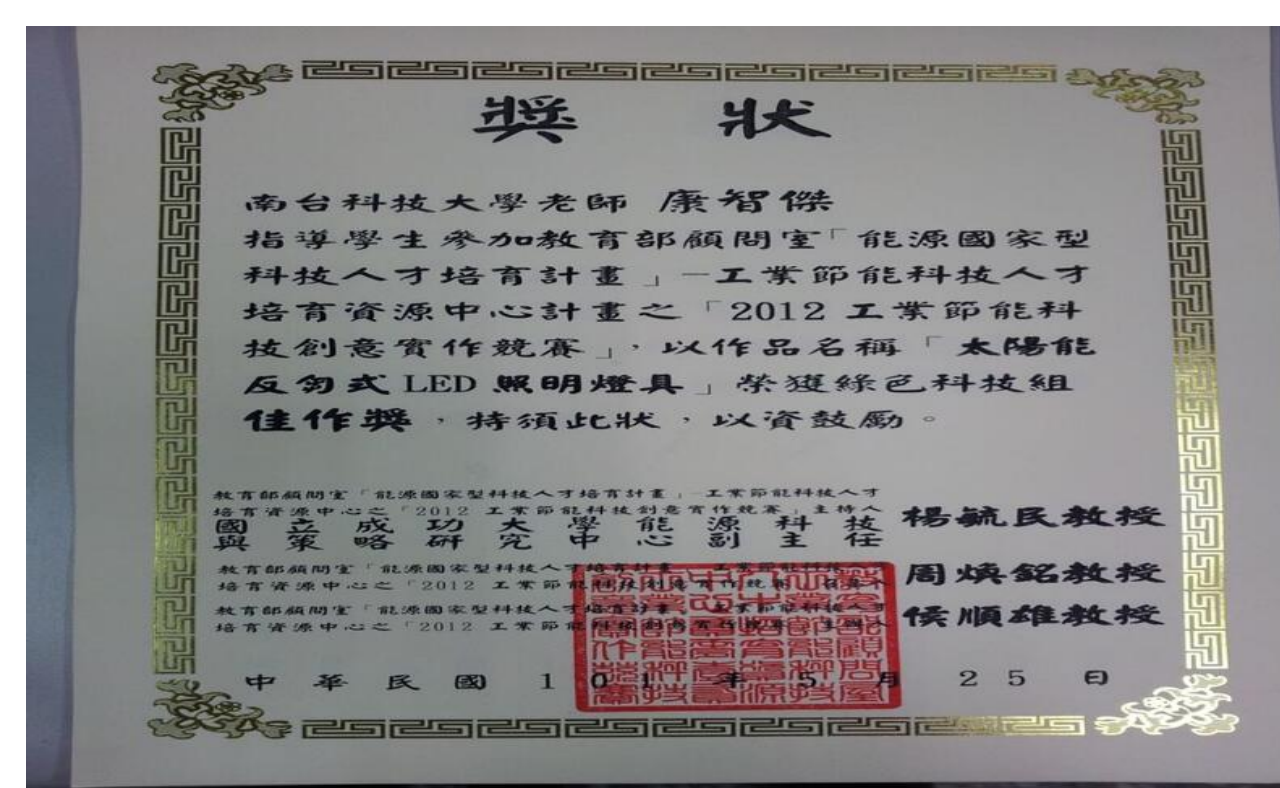 獎狀
南台科技大學老師 康智傑
指導學生參加教育部顧問室「能源國家型
科技人才培育計畫」-工業節能科技人才
培育資源中心計畫之「2012 工業節能科
技創意實作競賽」,以作品名稱「太陽能
反勿式 LED 照明燈具」榮獲綠色科技組
佳作獎,特頒此狀,以資鼓勵。
教育部顧問室「能源國家型科技人才培育計畫」-工業節能科技人才
培育資源中心之「2012 工業節能科技創意實作競賽」主持人
國立成功大學能源科技
與策略研究中心副主任
楊毓民教授
教育部顧問室「能源國家型科技人才培育計畫
培育資源中心之「2012 工業節能科技創意實作競賽
周煥銘教授
教育部顧問室「能源國家型科技人才培育計畫」-工業節能科技人才
培育資源中心之「2012 工業節能科技創意實作競賽」主辦人
侯順雄教授
中華民國 101 年 5 月 25 日